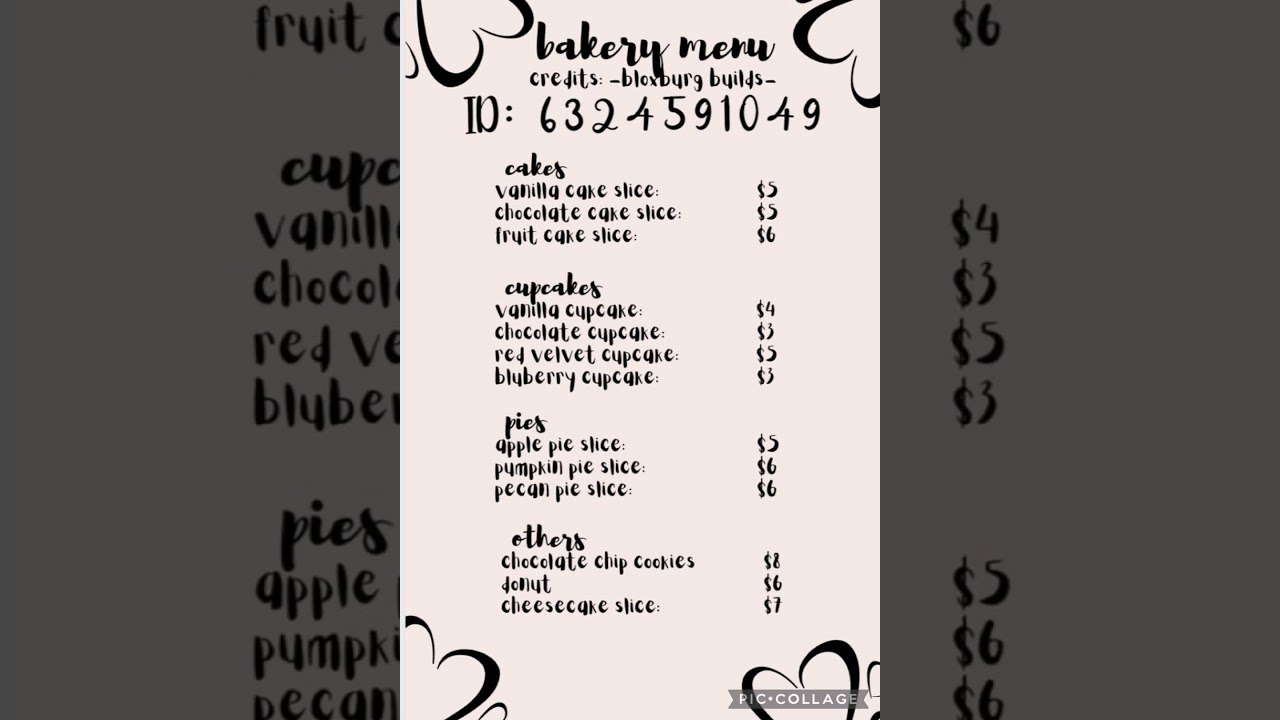 bakery menu
credits: -bloxburg builds-
ID: 6324591049
cakes
vanilla cake slice: $5
chocolate cake slice: $5
fruit cake slice: $6
cupcakes
vanilla cupcake: $4
chocolate cupcake: $3
red velvet cupcake: $5
bluberry cupcake: $3
pies
apple pie slice: $5
pumpkin pie slice: $6
pecan pie slice: $6
others
chocolate chip cookies $8
donut $6
cheesecake slice: $7
PIC•COLLAGE
fruit c
cupc
vanill
chocol
red ve
bluber
pies
apple
pumpki
pecan
$6
$4
$3
$5
$3
$5
$6
$6